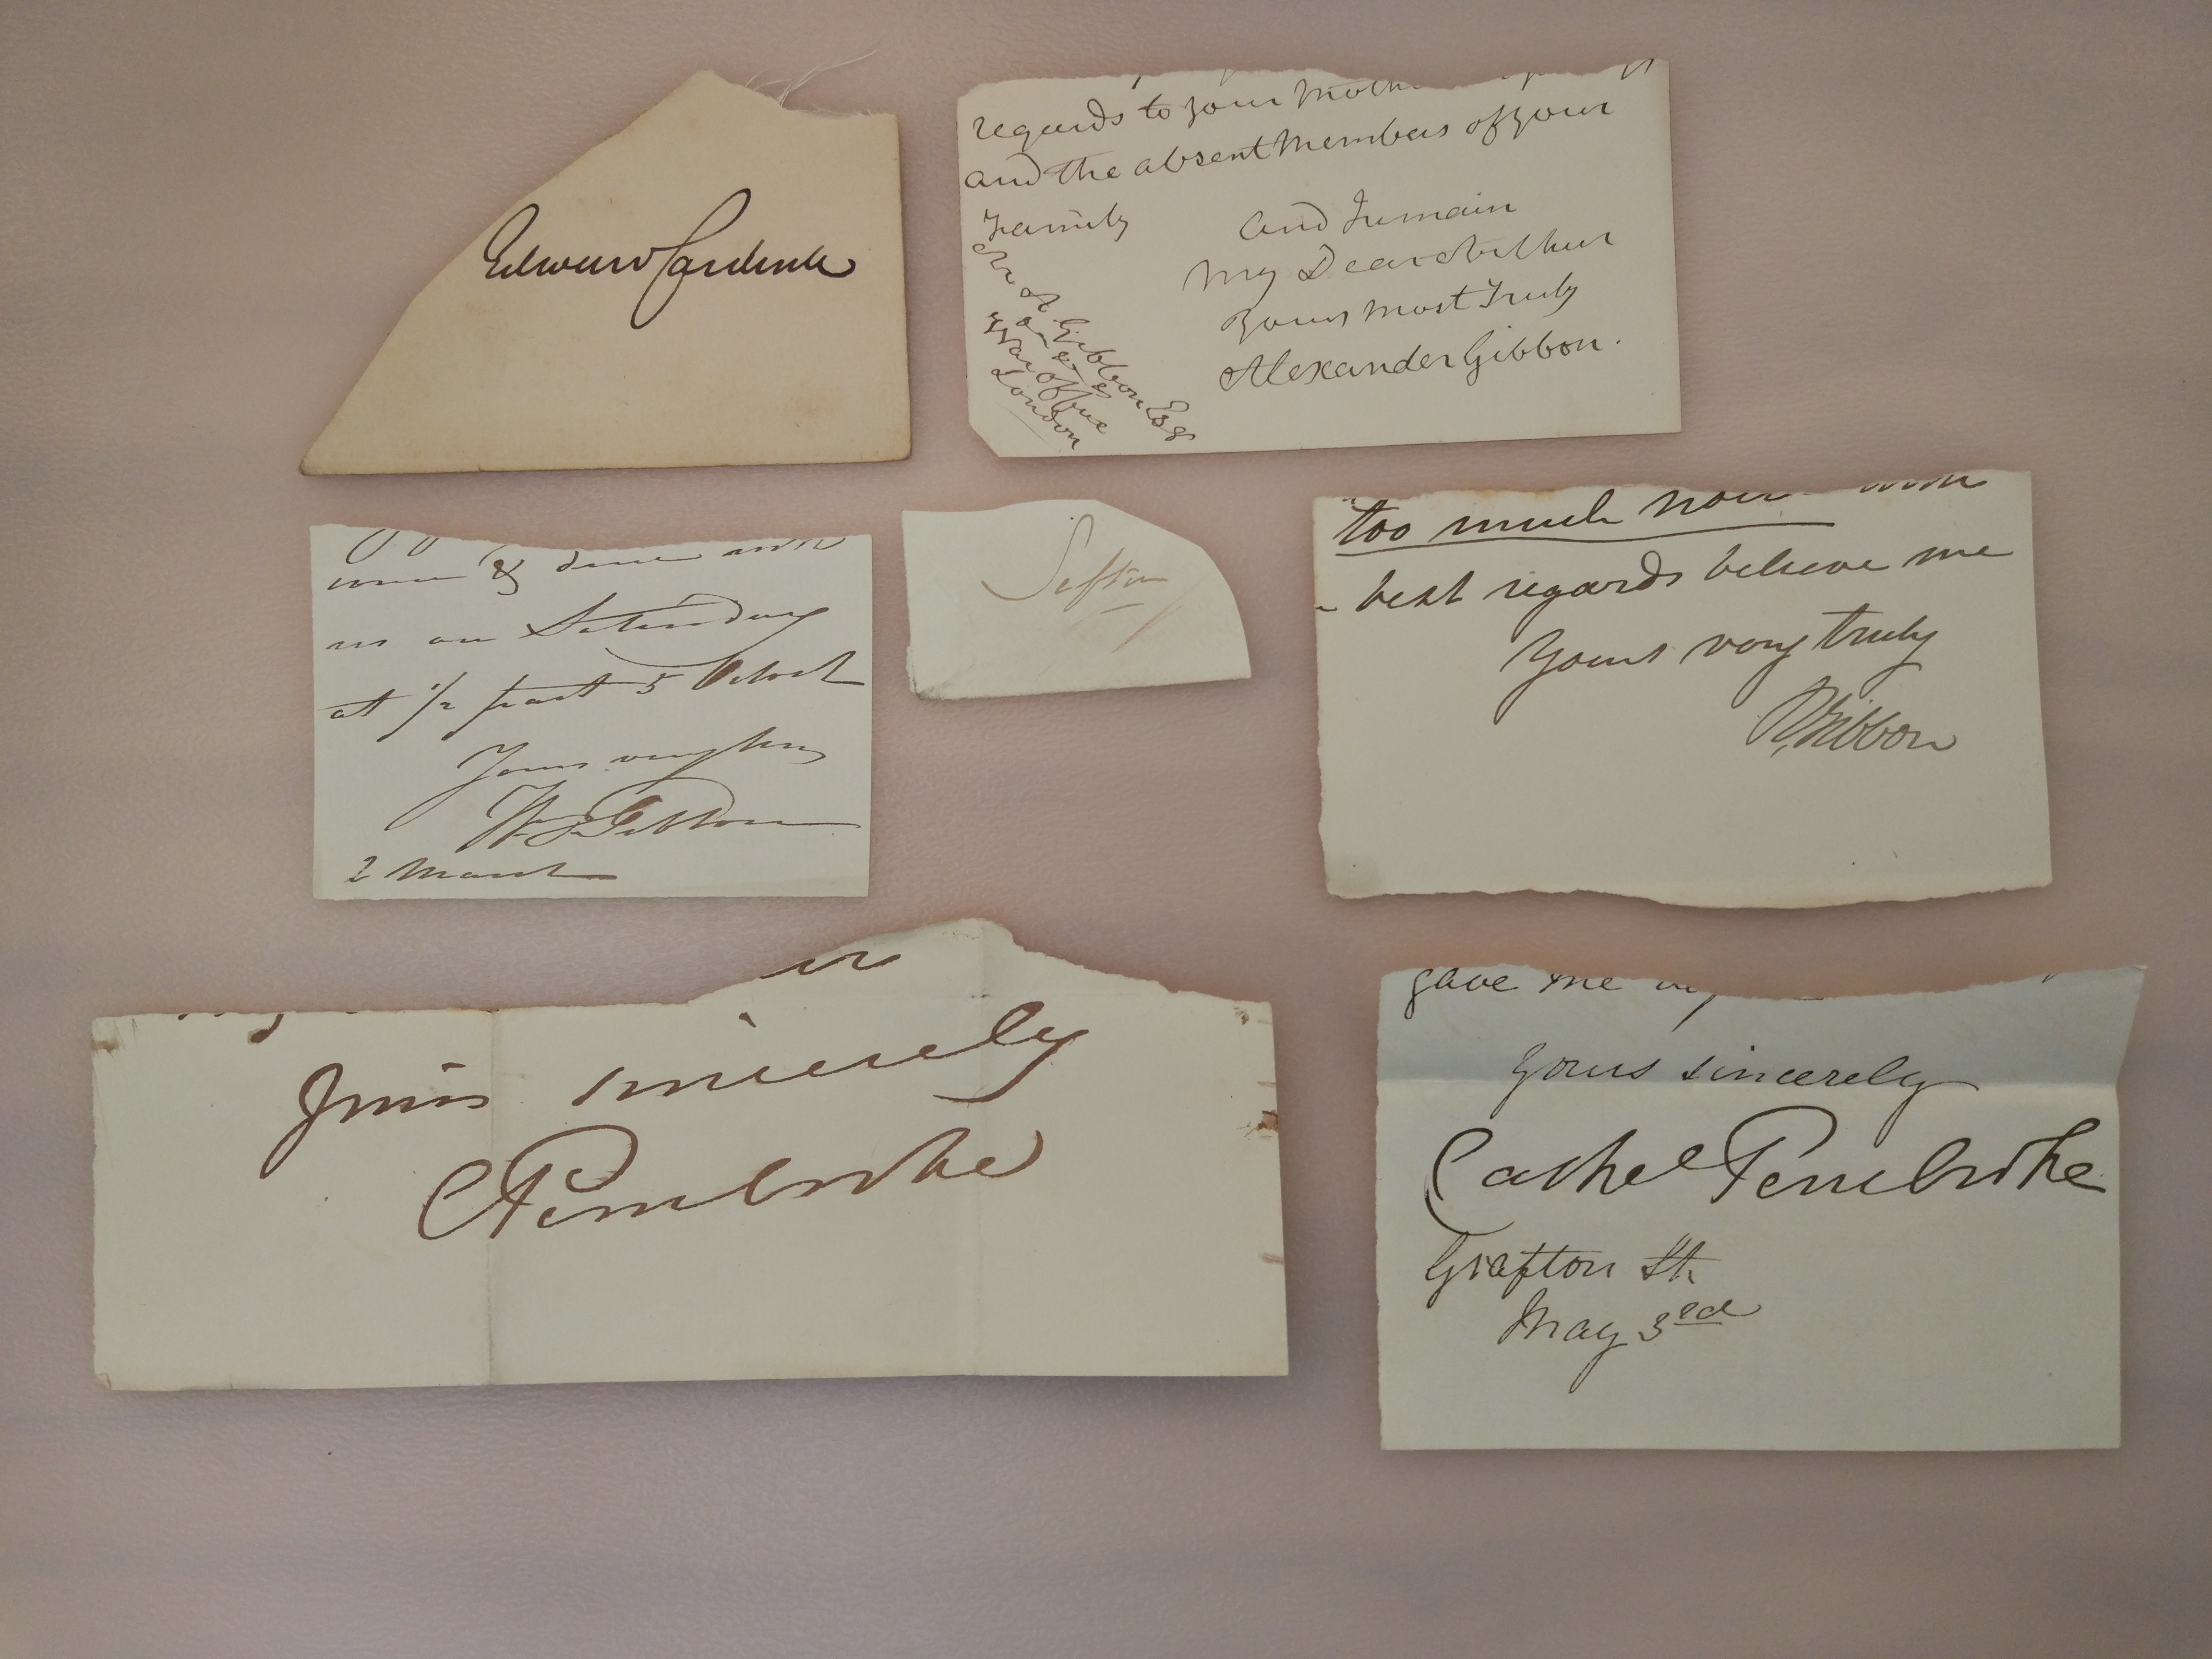 Edward Cardwell
regards to your Mother
and the absent Members of your
Family
And I remain
My Dear Arthur
Yours most Truly
Alexander Gibbon.
A. Gibbon Esq
War Office
London
come & dine with
us on Saturday
at 1/2 past 5 O'clock
Yours very truly
Gibbon
2 March
Sefton
too much
best regards believe me
Yours very truly
Gibbon
Yours sincerely
C Pembroke
gave me
Yours sincerely
Pembroke
Grafton St.
May 3rd